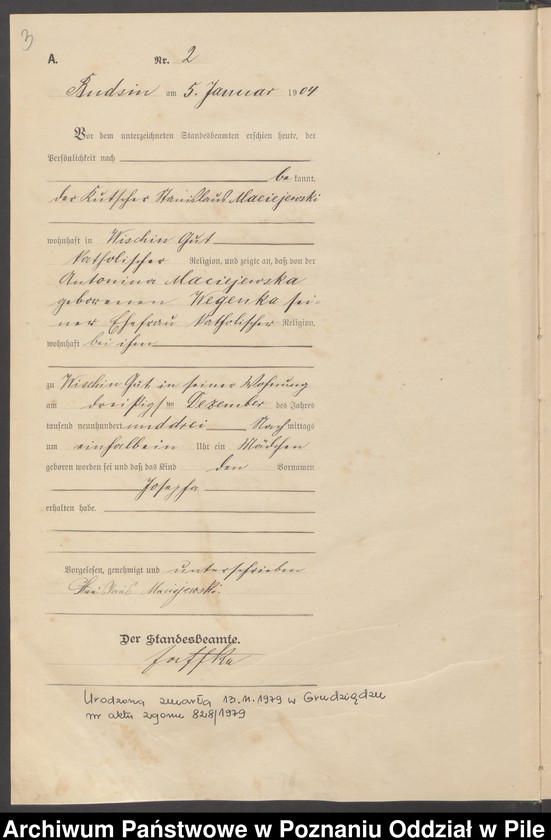 3
A. Nr. 2
Budsin am 5. Januar 1904
Vor dem unterzeichneten Standesbeamten erschien heute, der
Persönlichkeit nach
be kannt,
der Kutscher Stanislaus Maciejewski
wohnhaft in Wischin Gut
katholischer Religion, und zeigte an, daß von der
Antonina Maciejewska
geborenen Wegenka sei-
ner Ehefrau katholischer Religion,
wohnhaft bei ihm
zu Wischin Gut in seiner Wohnung
am dreißigsten Dezember des Jahres
tausend neunhundert und drei Nach mittags
um einhalb ein Uhr ein Mädchen
geboren worden sei und daß das Kind den Vornamen
Josepha
erhalten habe.
Vorgelesen, genehmigt und unterschrieben
Maciejewski.
Der Standesbeamte.
Urodzona zmarła 13.11.1979 w Grudziądzu
nr aktu zgonu 828/1979
Archiwum Państwowe w Poznaniu Oddział w Pile